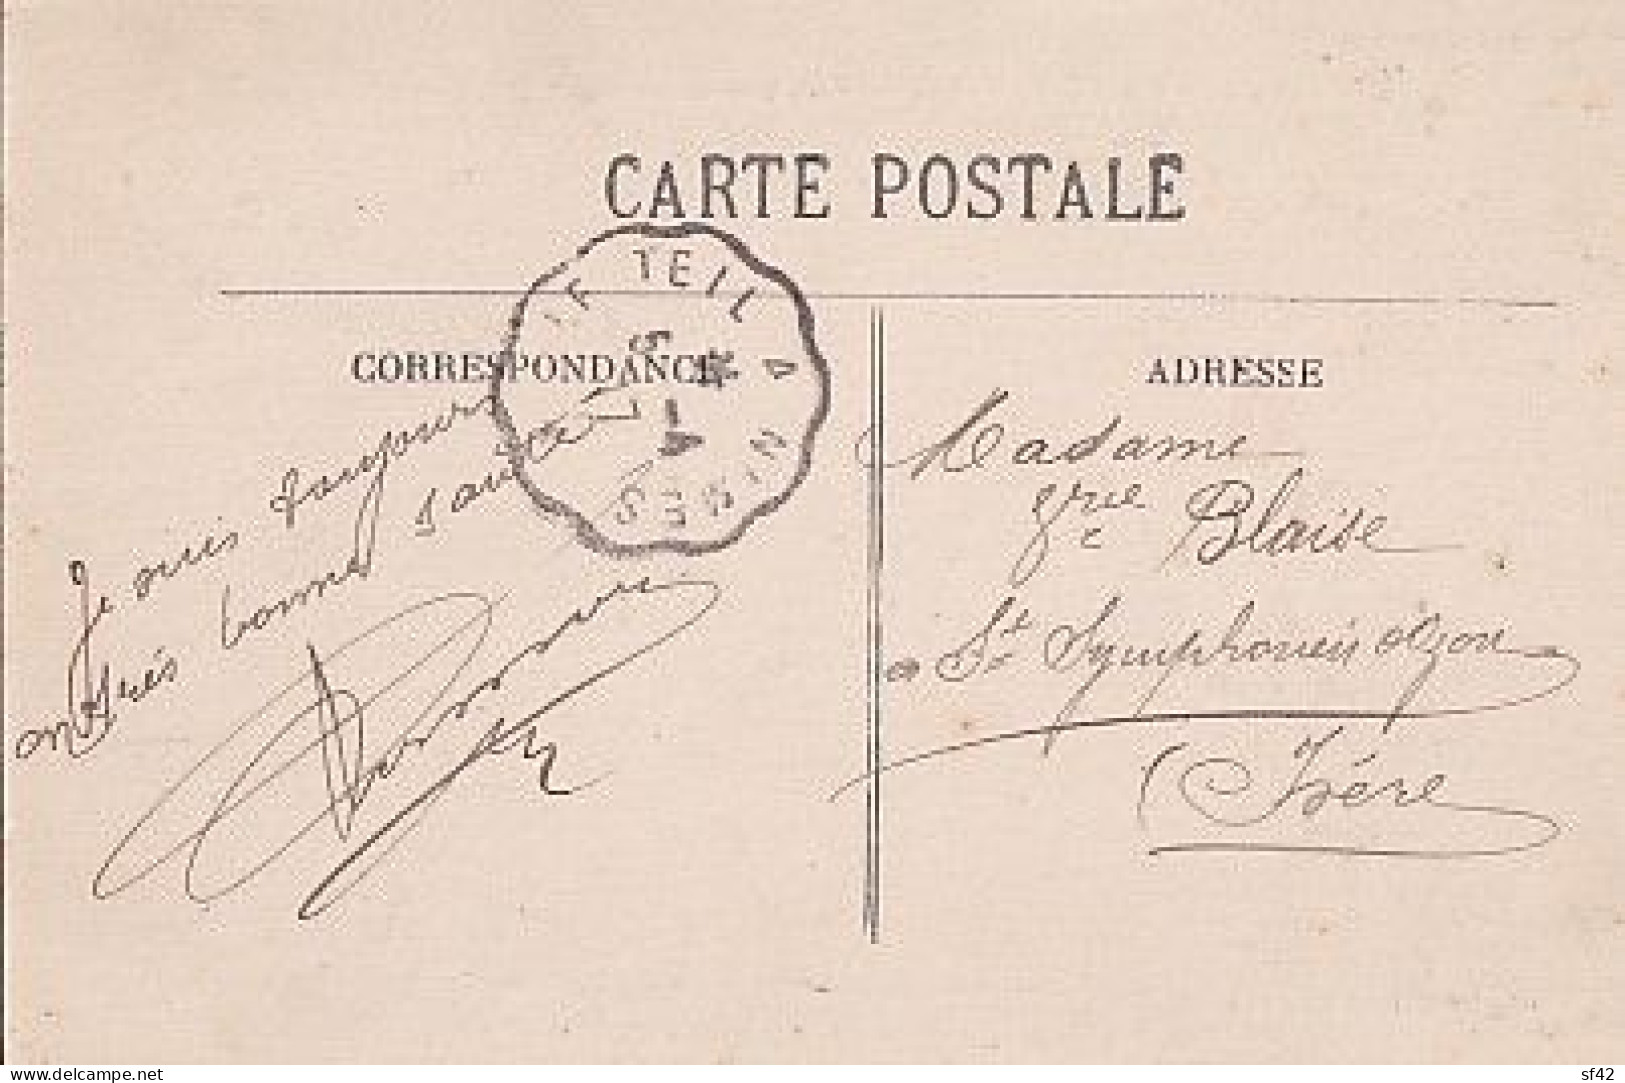 CARTE POSTALE
LE TEIL A NIMES
CORRESPONDANCE
Je suis toujours
en très bonne santé
ADRESSE
Madame
Vve Blaise
a St Symphorien d'Ozon
(Isére
www.delcampe.net
sf42